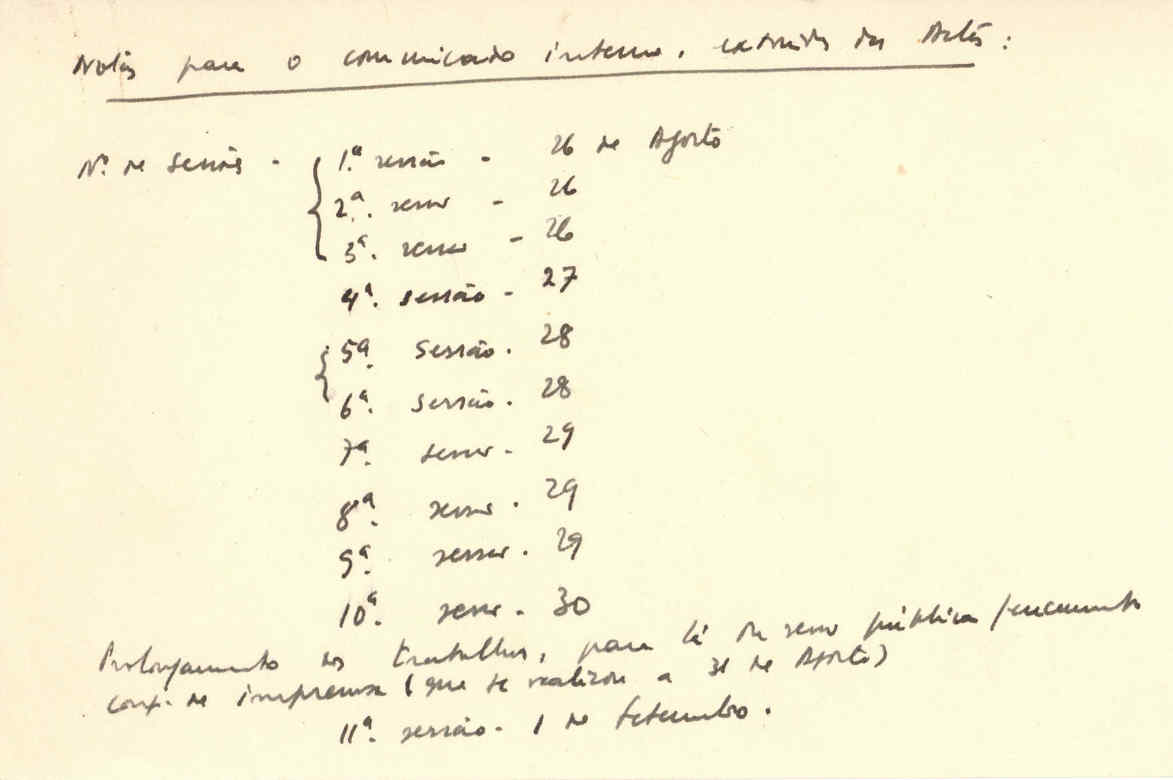 Notas para o comunicado interno, extraídas das Actas:
Nº. de sessões - 1.ª sessão - 26 de Agosto
2ª. sessão - 26
3ª. sessão - 26
4ª. sessão - 27
5ª. sessão. 28
6ª. sessão. 28
7ª. sessão - 29
8ª. sessão. 29
9ª. sessão. 29
10ª. sessão - 30
Prolongamento dos trabalhos, para lá da sessão pública / encerramento
conf. de imprensa (que se realizou a 31 de Agosto)
11ª. sessão - 1 de Setembro.